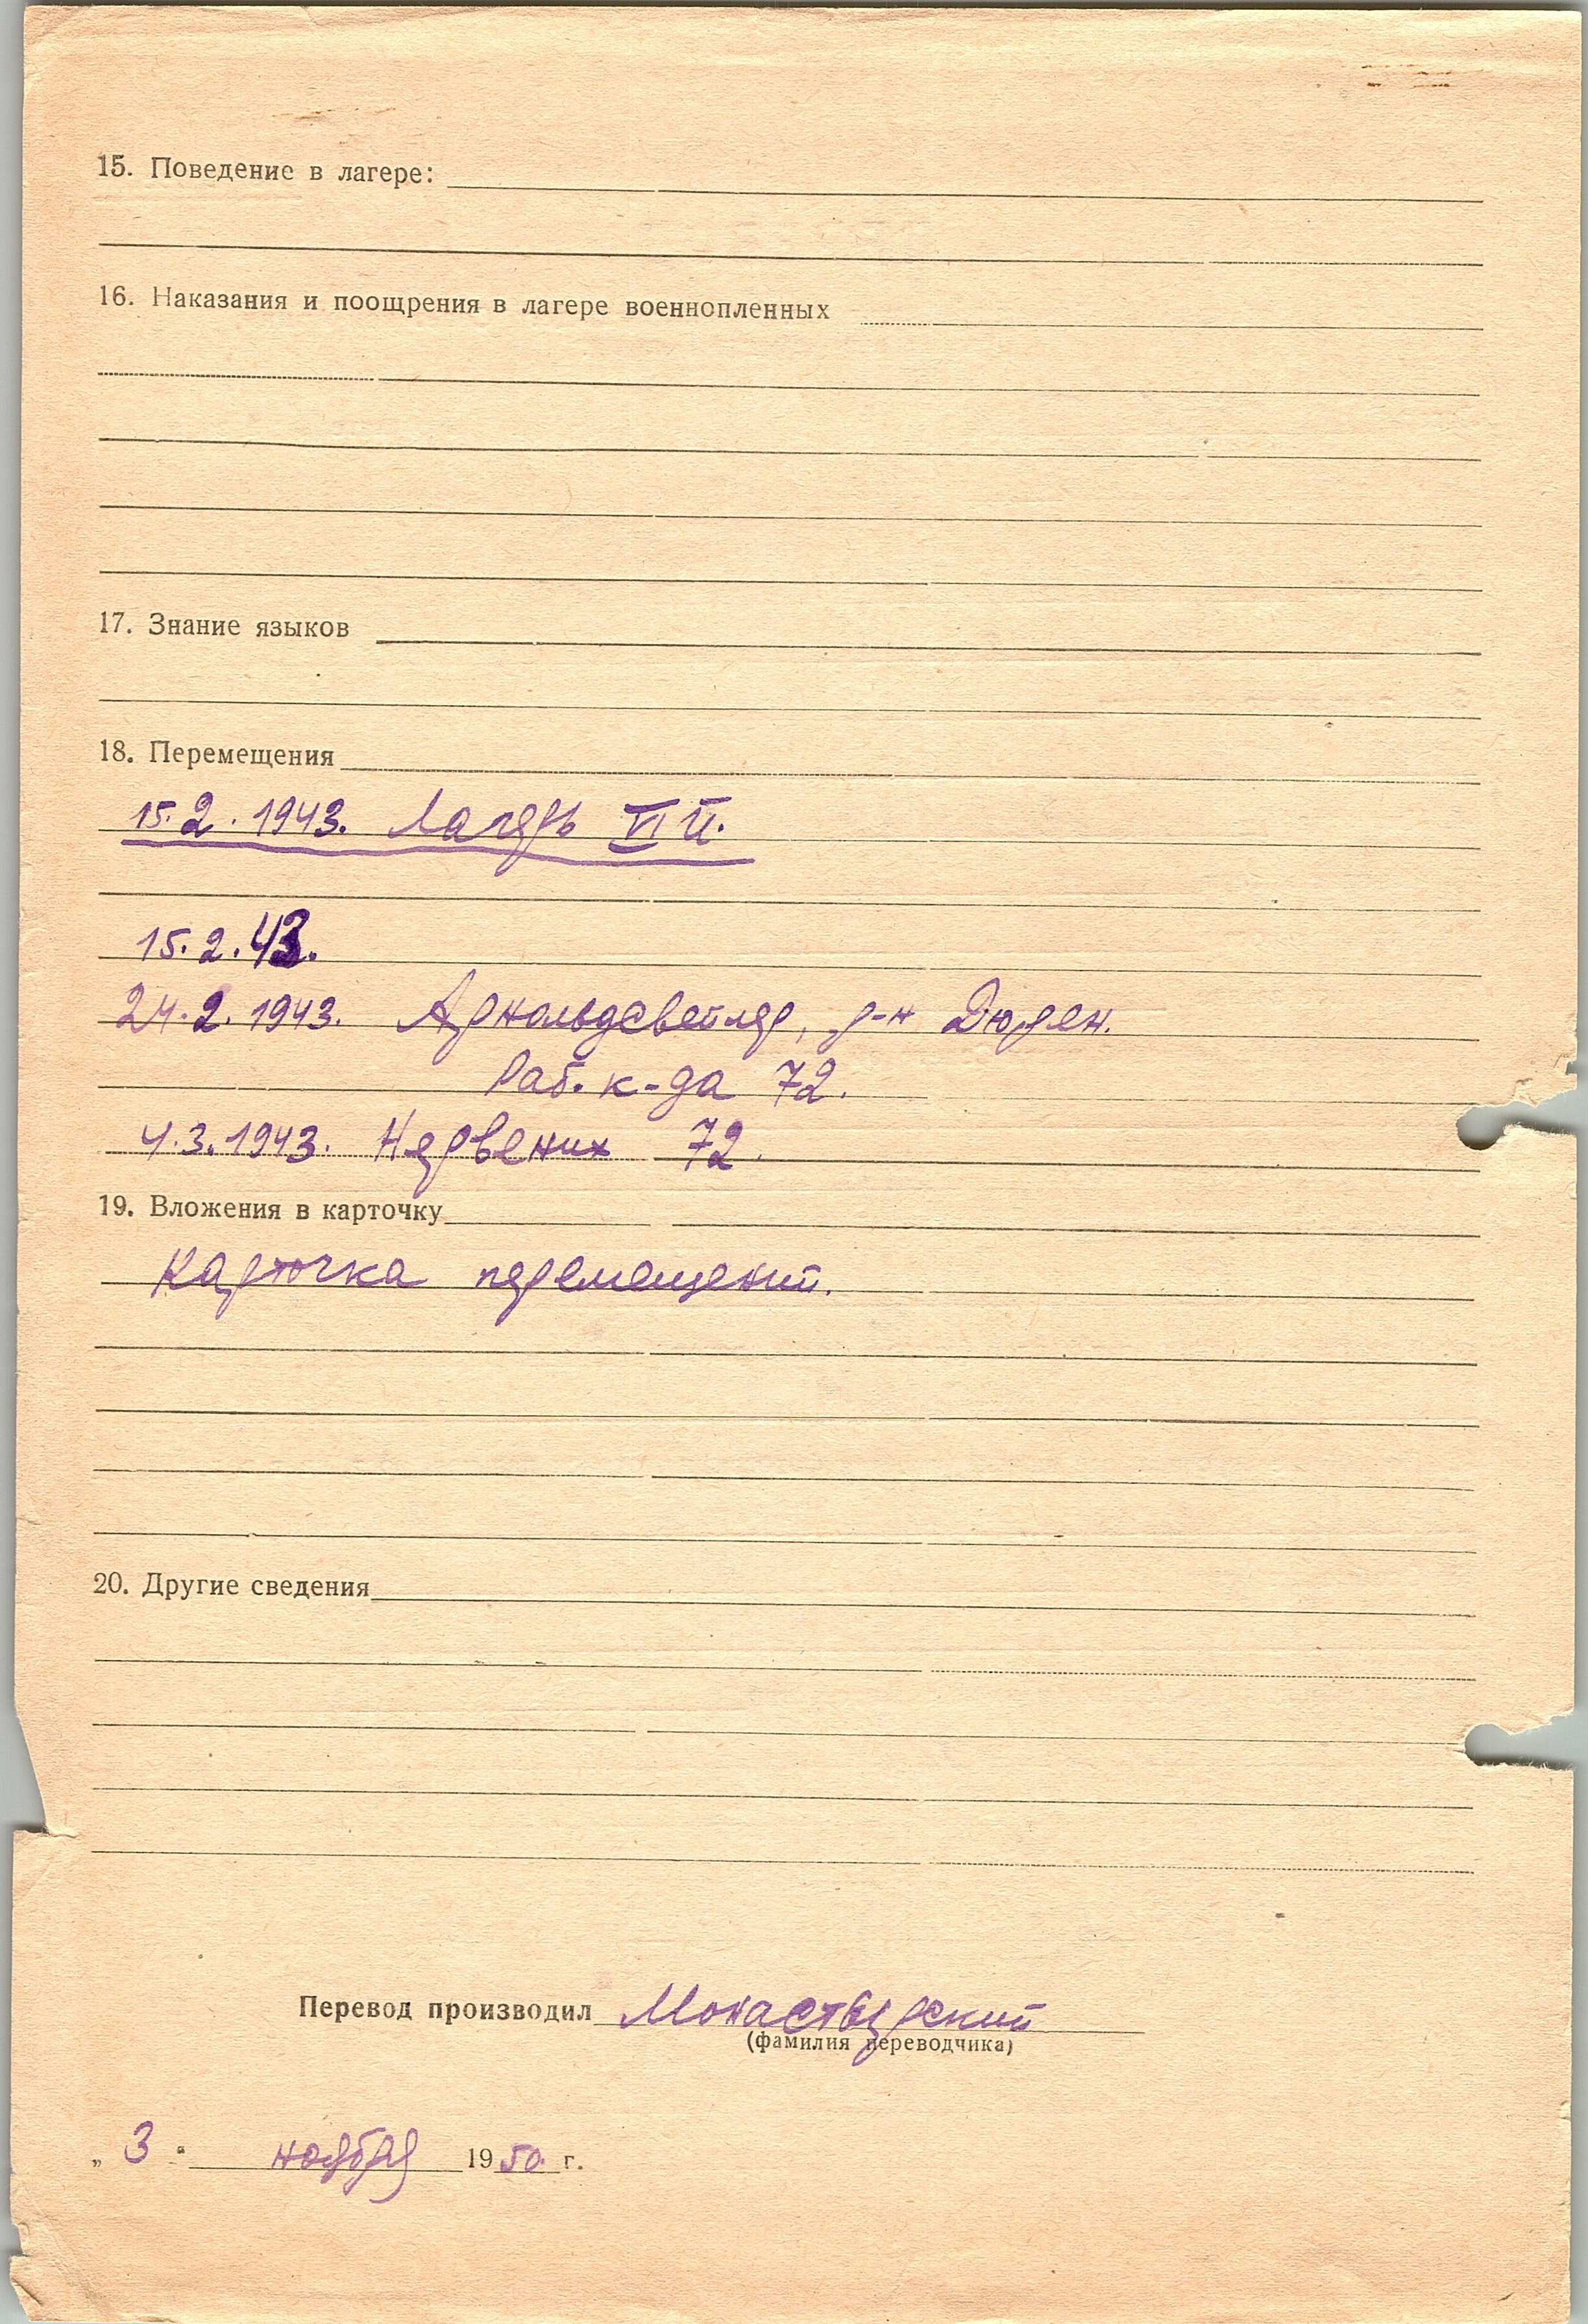 15. Поведение в лагере:
16. Наказания и поощрения в лагере военнопленных
17. Знание языков
18. Перемещения
15.2.1943. Лагерь VI й.
15.2.43.
24.2.1943. Арнольдсвейлер, р-н Дюрен.
Раб. к-да 72.
4.3.1943. Нервених 72.
19. Вложения в карточку
Карточка перемещений.
20. Другие сведения
Перевод производил Монастырский
(фамилия переводчика)
„ 3 " ноября 1950 г.